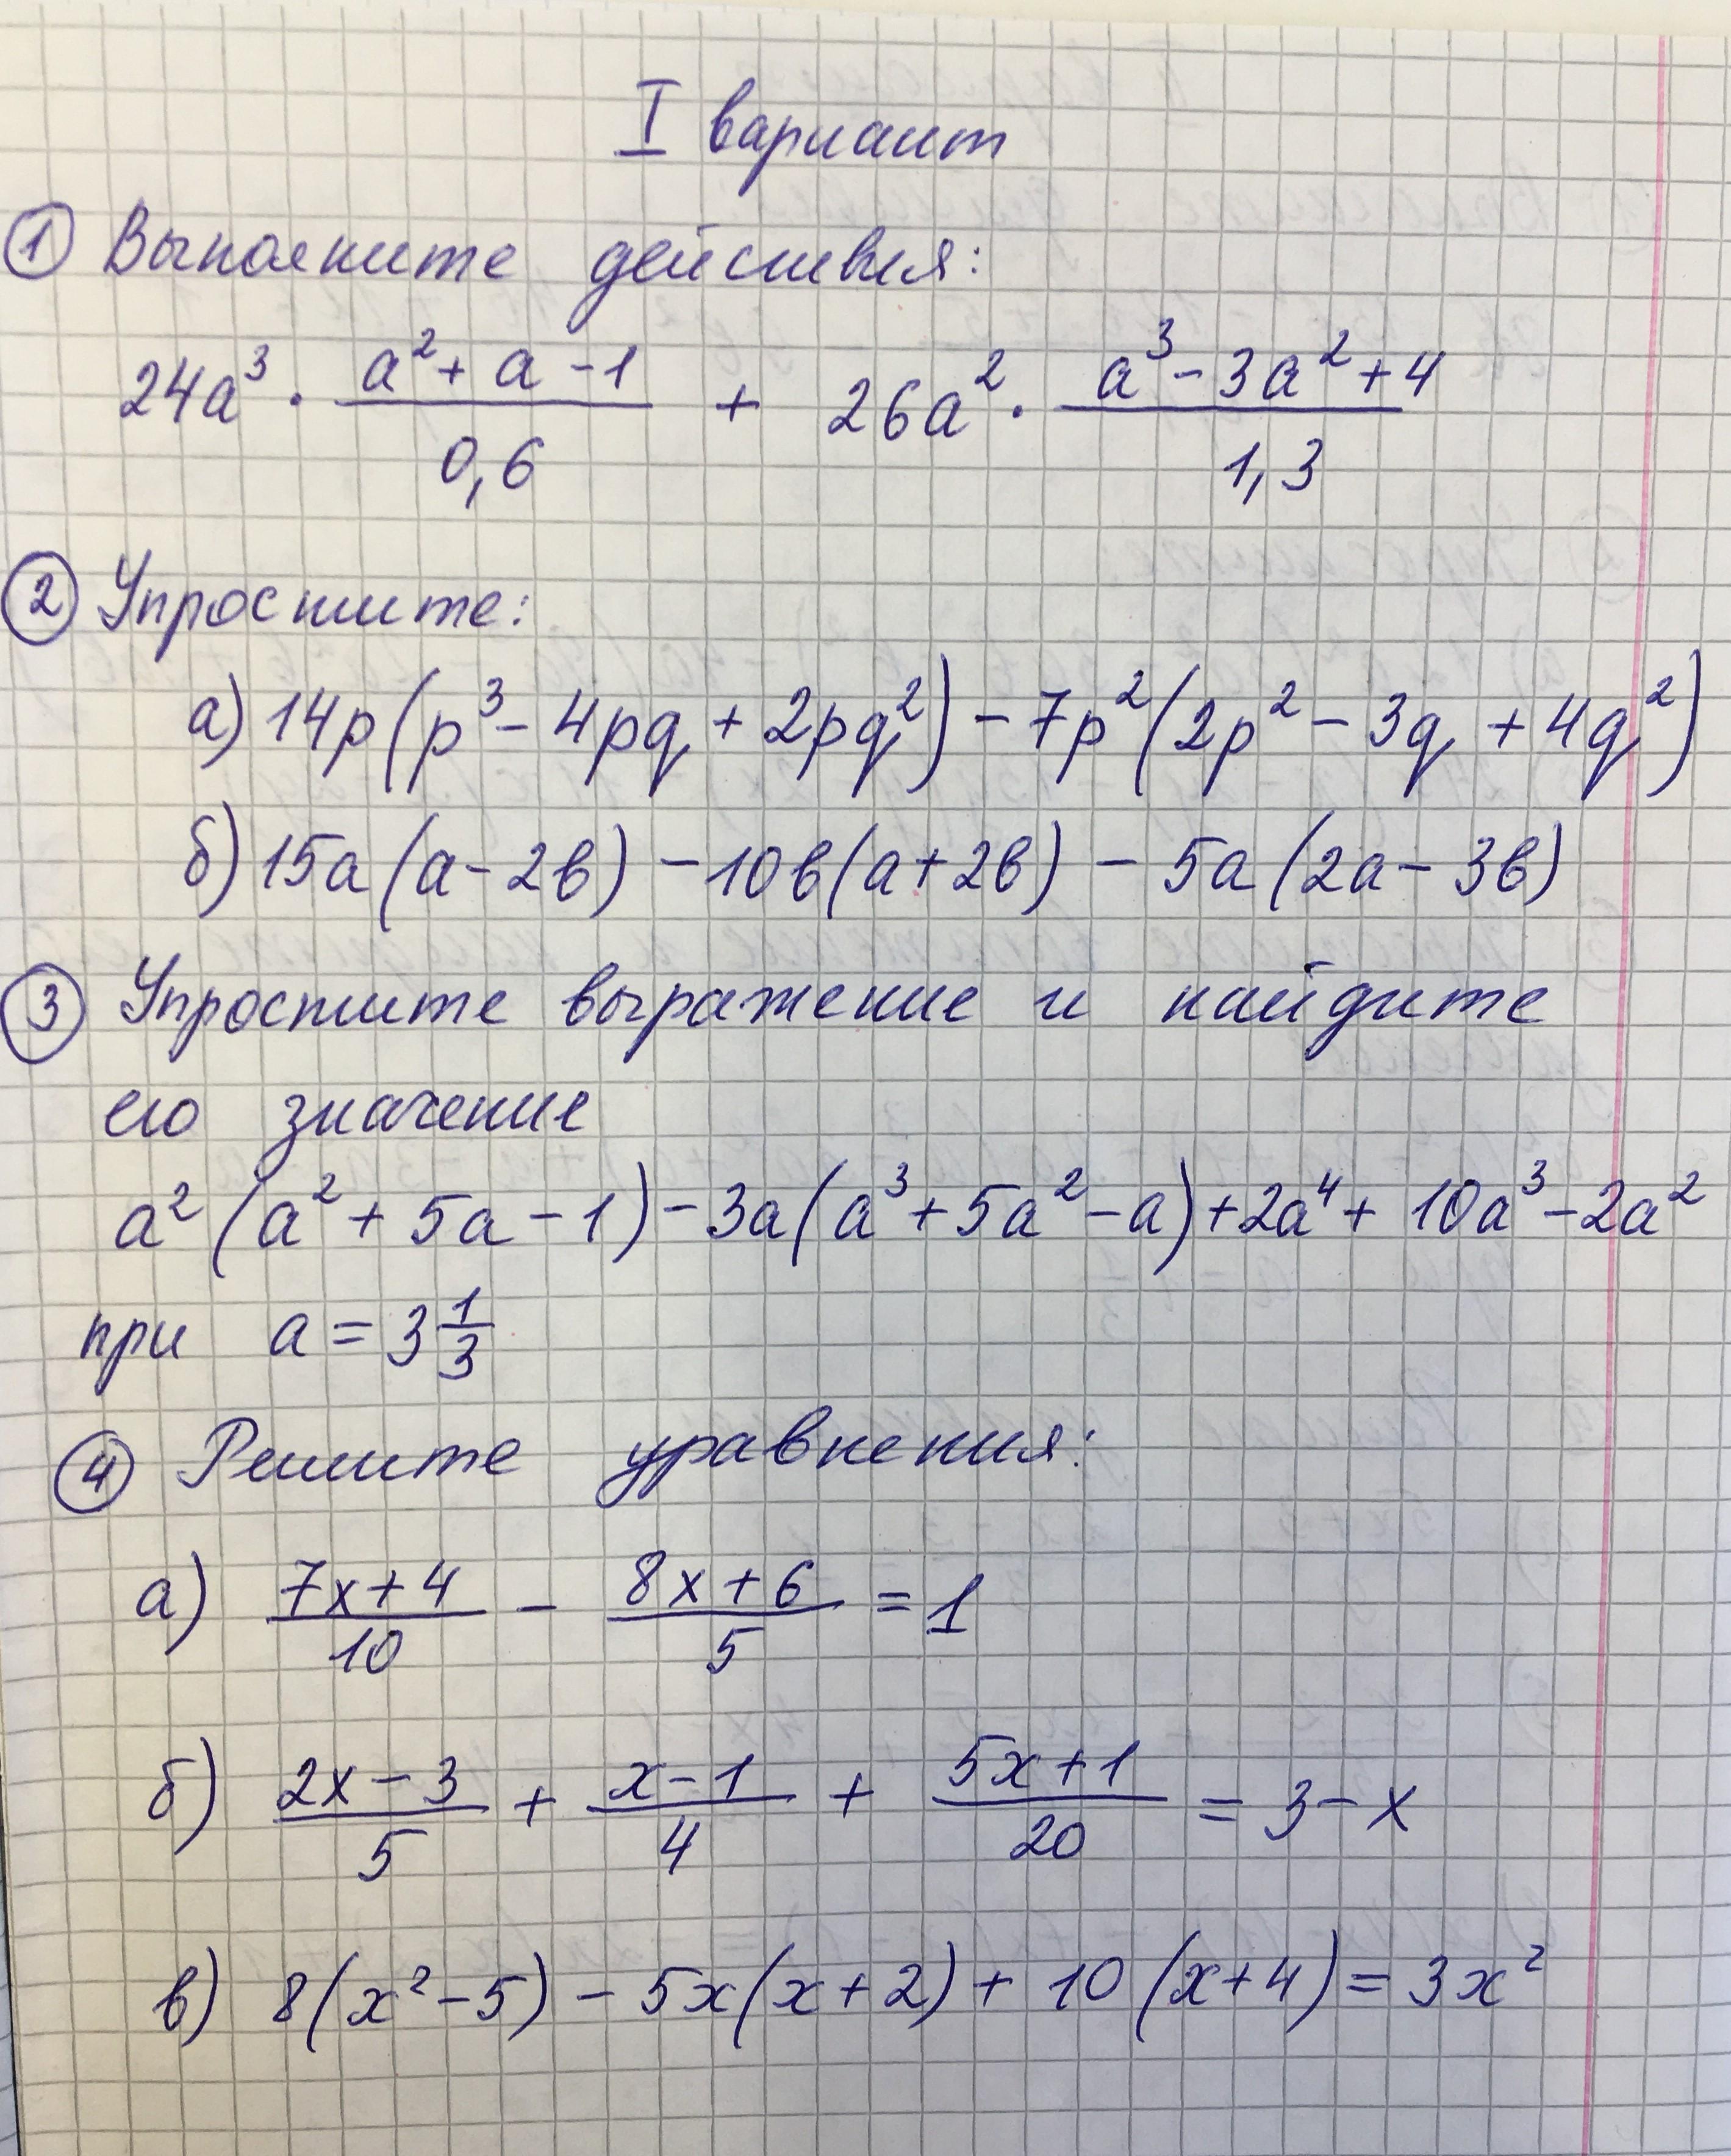 I вариант
① Выполните действия:
24a³ · (a² + a - 1)/0,6 + 26a² · (a³ - 3a² + 4)/1,3
② Упростите:
а) 14p(p³ - 4pq + 2pq²) - 7p²(2p² - 3q + 4q²)
б) 15a(a - 2b) - 10b(a + 2b) - 5a(2a - 3b)
③ Упростите выражение и найдите
его значение
a²(a² + 5a - 1) - 3a(a³ + 5a² - a) + 2a⁴ + 10a³ - 2a²
при a = 3 1/3
④ Решите уравнения:
а) (7x + 4)/10 - (8x + 6)/5 = 1
б) (2x - 3)/5 + (x - 1)/4 + (5x + 1)/20 = 3 - x
в) 8(x² - 5) - 5x(x + 2) + 10(x + 4) = 3x²